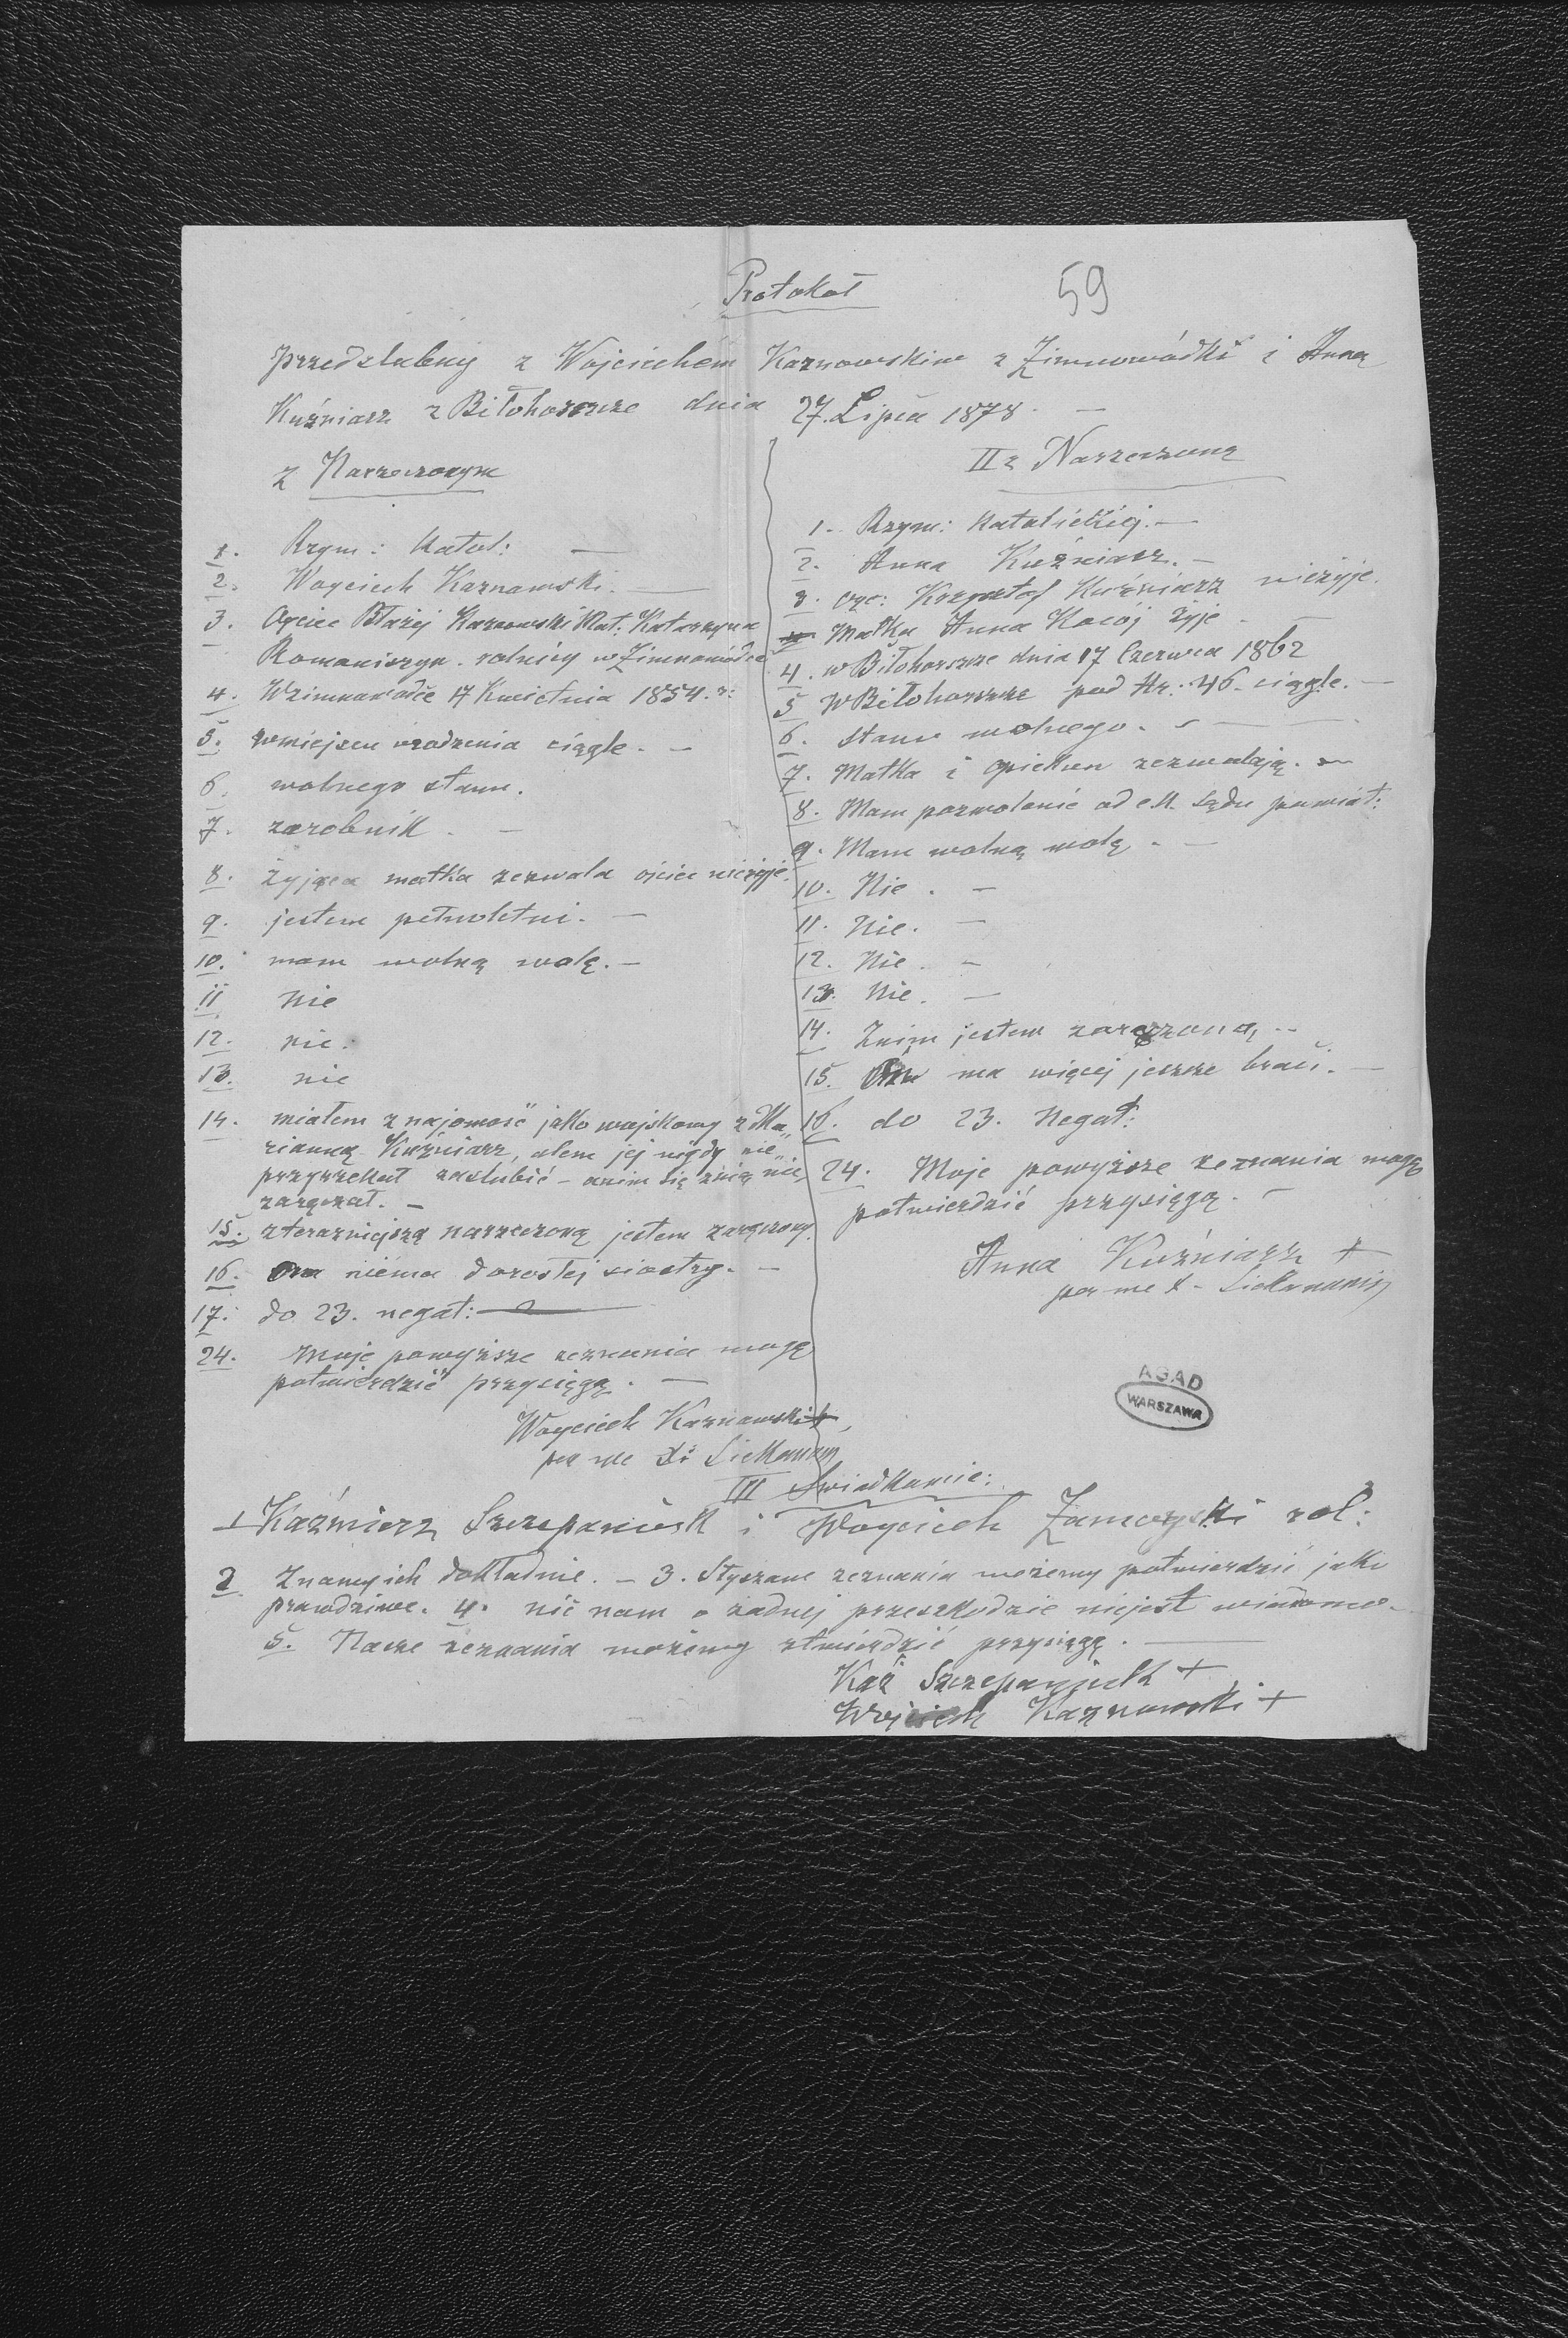 Protokół
59
przedślubny z Wojciechem Kaznowskim z Zimnowódki i Anną
Kuźniarz z Biłohorszcze dnia 27. Lipca 1878. —
z Narzeczonym
1. Rzym: Katol: —
2. Woyciech Kaznowski. —
3. Oyciec Błażej Kaznowski Mat: Katarzyna
Romaniszyn. rolnicy w Zimnowódce
4. W Zimnowódce 17 Kwietnia 1854. r:
5. w miejscu urodzenia ciągle. —
6. wolnego stanu.
7. zarobnik. —
8. żyjąca matka zezwala ojciec nieżyje.
9. jestem pełnoletni. —
10. mam wolną wolę. —
11 Nie
12. nie.
13. nie
14. miałem znajomość jako wojskowy z Ma„
rianną Kuźniarz, alem jej nigdy nie„
przyrzekał zaslubić – anim się znią nie
zaręczał. —
15. z terazniejszą narzeczoną jestem zaręczony.
16. Ona niema dorosłej siostry. —
17. do 23. negat: —
24. Moje powyższe zeznania mogę
potwierdzić przysięgą. —
Woyciech Kaznowski +
per me
II z Narzeczoną
1. Rzym: Katolickiej. —
2. Anna Kuźniarz. —
3. oyc: Krzysztof Kuźniarz nieżyje.
Matka Anna Kociój żyje. —
4. w Biłohorszcze dnia 17 Czerwca 1862
5 W Biłohorszcze pod Nr: 46. ciągle. —
6. stanu wolnego. —
7. Matka i opiekun zezwalają. —
8. Mam pozwolenie od c.k. Sądu powiat:
9. Mam wolną wolę. —
10. Nie. —
11. Nie. —
12. Nie. —
13. Nie. —
14. Znim jestem zaręczoną. —
15. On ma więcej jeszcze braci. —
16. do 23. Negat:
24. Moje powyższe zeznania mogę
potwierdzić przysięgą. —
Anna Kuźniarz +
per me
AGAD
WARSZAWA
III Świadkowie:
1 Kaźmierz Szczepaniuk i Woyciech Zamoyski rol:
2 Znamy ich dokładnie. – 3. Słyszane zeznania możemy potwierdzić jako
prawdziwe. 4. nic nam o żadnej przeszkodzie niejest wiadomo –
5. Nasze zeznania możemy stwierdzić przysięgą. —
Kaź Szczepaniuk +
Wojciech Kaznowski +